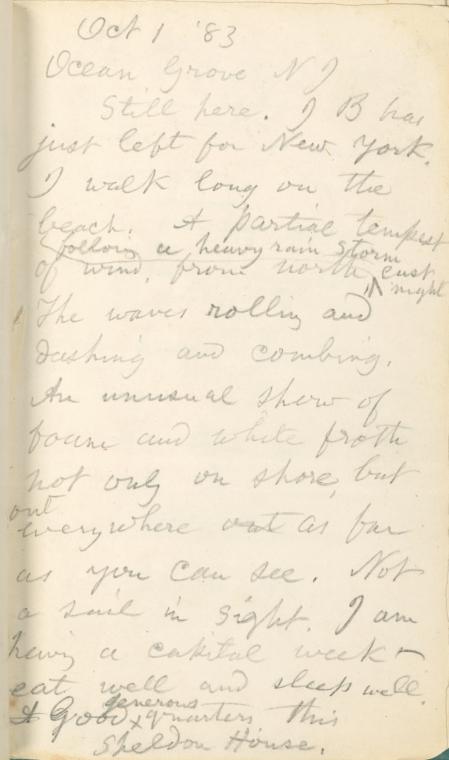 Oct 1 '83
Ocean Grove N J
Still here. J B has
just left for New York.
I walk long on the
beach. A partial tempest
following a heavy rain storm
of wind, from north east
^ night
The waves rolling and
dashing and combing.
An unusual show of
foam and white froth
not only on shore, but
out
everywhere out as far
as you can see. Not
a sail in sight. I am
having a capital week –
eat well and sleep well.
generous
A Good x quarters this
Sheldon House.